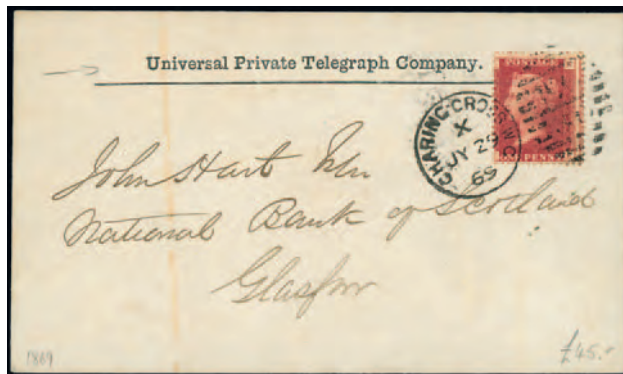 Universal Private Telegraph Company.
CHARING-CROSS W.C
X
JY 29
69
John Hart
National Bank of Scotland
Glasgow
1869
£45.-